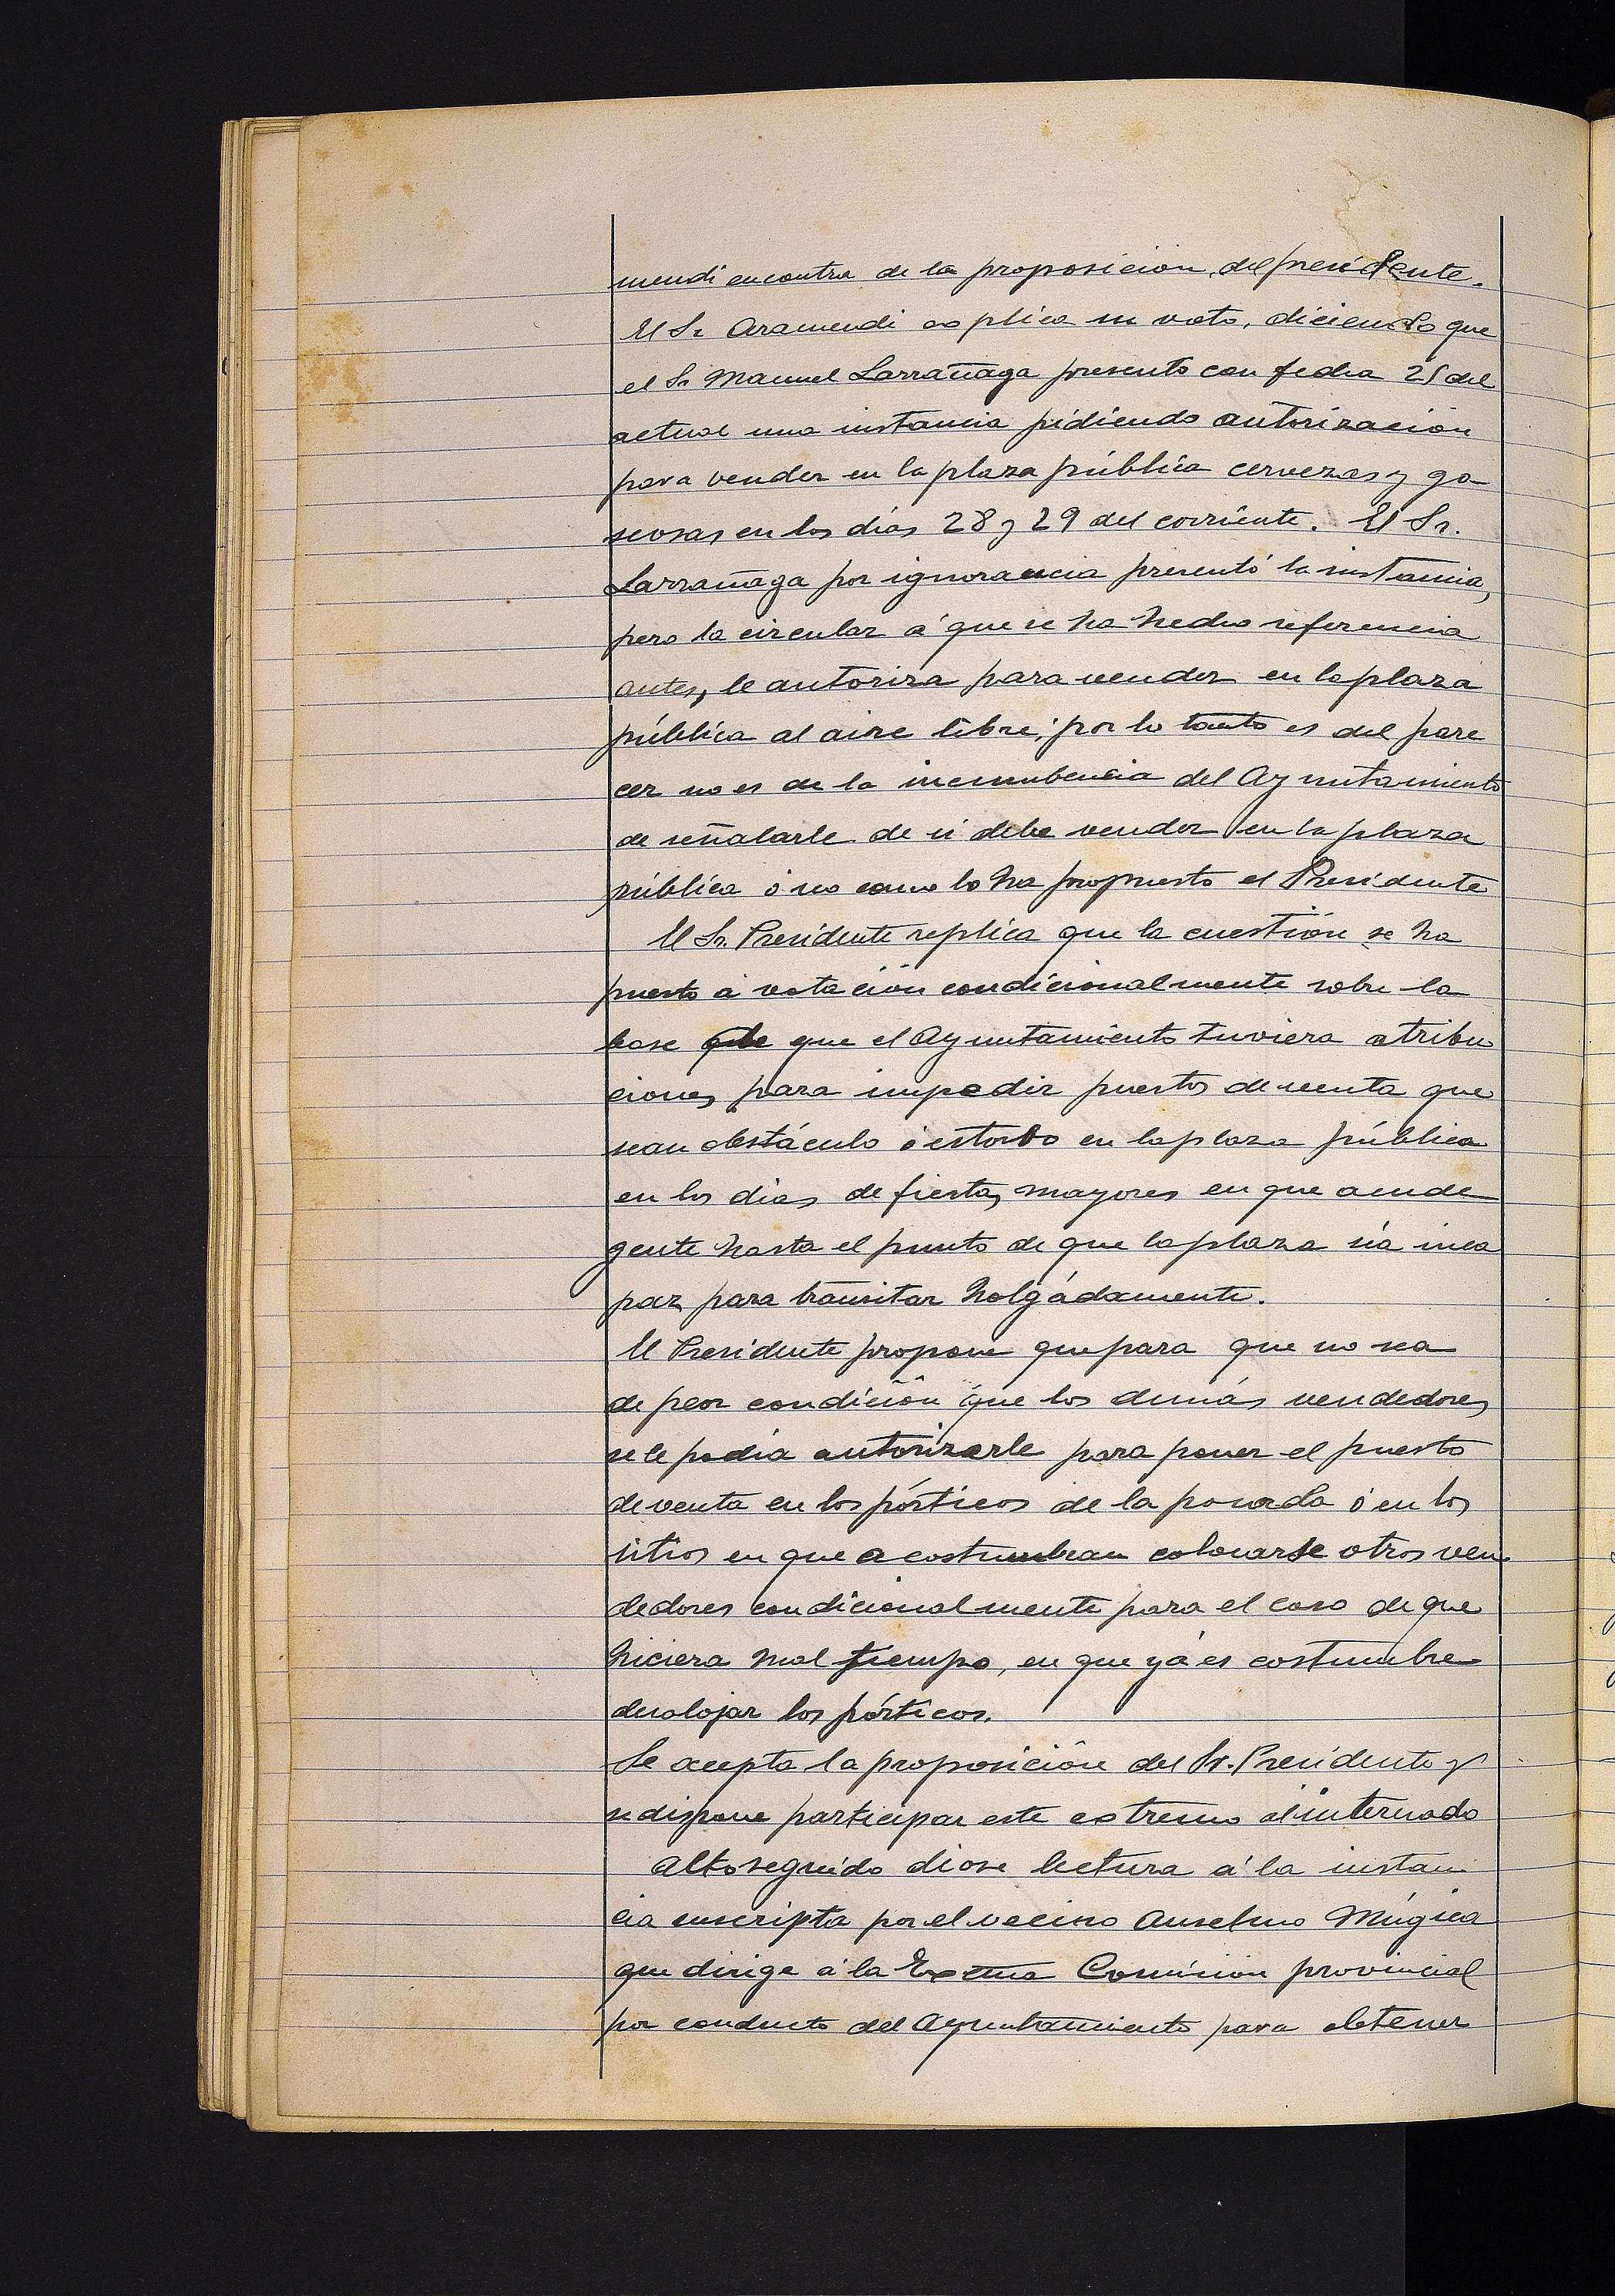 mendi encontra de la proposición del presidente.
El Sr Aramendi explica su voto, diciendo que
el Sr Manuel Larrañaga presento con fecha 25 del
actual una instancia pidiendo autorización
para vender en la plaza pública cervezas y ga-
seosas en los días 28 y 29 del corriente. El Sr.
Larrañaga por ignorancia presentó la instancia,
pero la circular á que se ha hecho referencia
antes, le autoriza para vender en la plaza
pública al aire libre; por lo tanto es del pare
cer no es de la incumbencia del Ayuntamiento
de señalarle de si debe vender en la plaza
pública ó no como lo ha propuesto el Presidente
El Sr. Presidente replica que la cuestión se ha
puesto á votación condicionalmente sobre la
base de que el Ayuntamiento tuviera atribu
ciones para impedir puestos de venta que
sean obstáculo ó estorbo en la plaza pública
en los dias de fiestas mayores en que acude
gente hasta el punto de que la plaza sea inca
paz para transitar holgádamente.
El Presidente propone que para que no sea
de peor condición que los demás vendedores
se le podia autorizarle para poner el puesto
de venta en los pórticos de la posada ó en los
sitios en que acostumbran colocarse otros ven-
dedores condicionalmente para el caso de que
hiciera mal tiempo, en que yá es costumbre
desalojar los pórticos.
Se acepta la proposición del Sr. Presidente y
se dispone participar este extremo al interesado
Alto seguido diose lectura á la instan
cia suscripta por el vecino Anselmo Múgica
que dirige á la Excma Comisión provincial
por conducto del Ayuntamiento para obtener